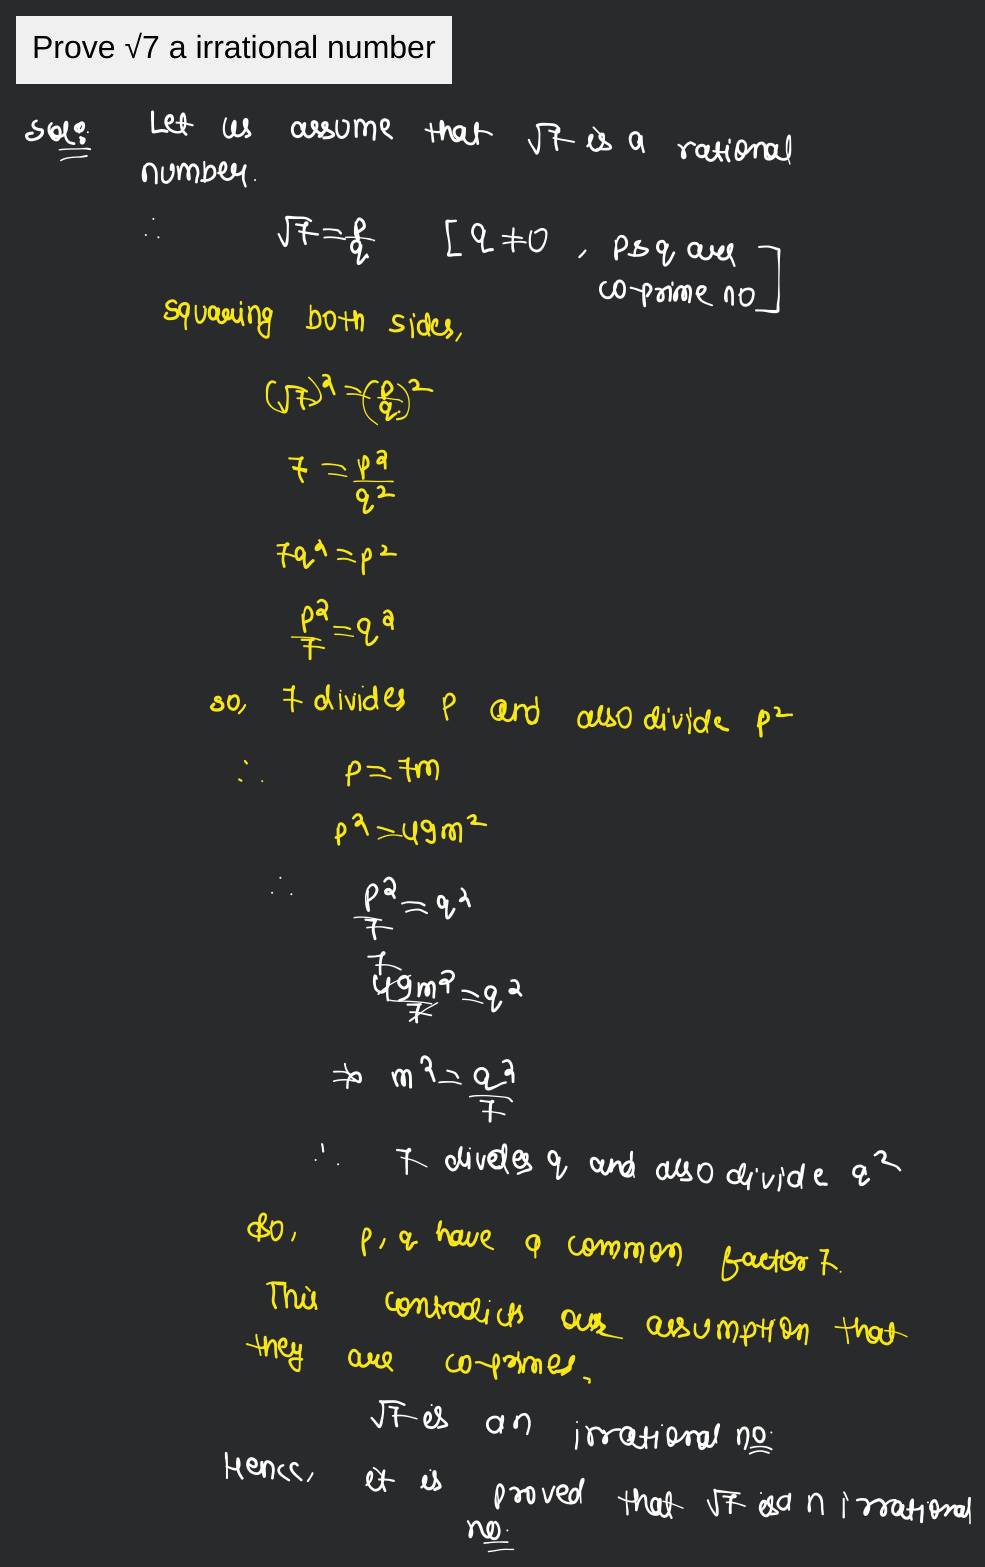 Prove √7 a irrational number
Sol: Let us assume that √7 is a rational
number.
∴ √7 = p/q [q ≠ 0, p & q are
co-prime no]
Squaring both sides,
(√7)² = (p/q)²
7 = p²/q²
7q² = p²
p²/7 = q²
so, 7 divides p and also divide p²
∴ p = 7m
p² = 49m²
∴ p²/7 = q²
7
49m²/7 = q²
⇒ m² = q²/7
∴ 7 divides q and also divide q²
So, p, q have a common factor 7.
This contradicts our assumption that
they are co-primes.
√7 is an irrational no.
Hence, it is proved that √7 is an irrational
no.